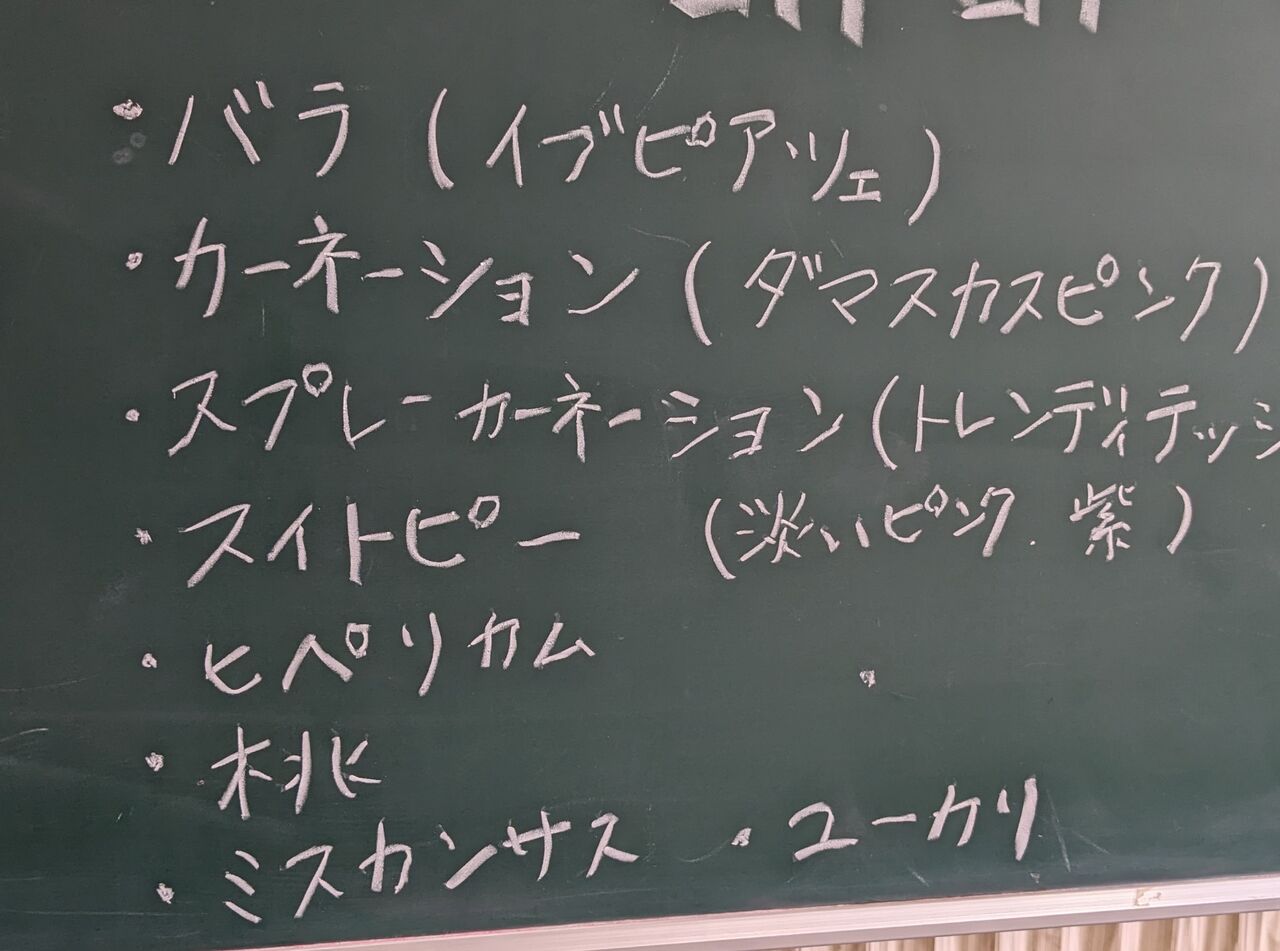 ・バラ（イブピアッツェ）
・カーネーション（ダマスカスピンク）
・スプレーカーネーション（トレンディテッシ
・スイトピー （淡いピンク．紫）
・ヒペリカム
・桃
・ミスカンサス ・ユーカリ